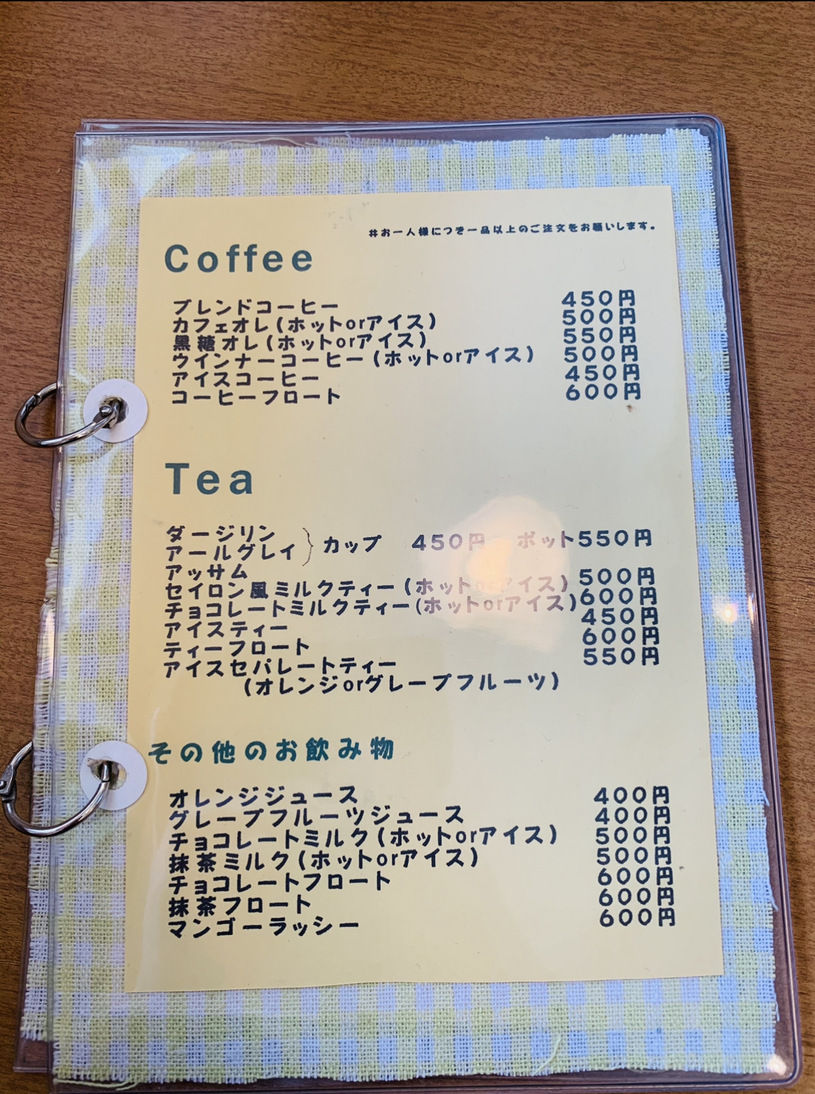 #お一人様につき一品以上のご注文をお願いします。
Coffee
ブレンドコーヒー 450円
カフェオレ(ホットorアイス) 500円
黒糖オレ(ホットorアイス) 550円
ウインナーコーヒー(ホットorアイス) 500円
アイスコーヒー 450円
コーヒーフロート 600円
Tea
ダージリン
アールグレイ } カップ 450円 ポット550円
アッサム
セイロン風ミルクティー(ホットorアイス) 500円
チョコレートミルクティー(ホットorアイス) 600円
アイスティー 450円
ティーフロート 600円
アイスセパレートティー 550円
(オレンジorグレープフルーツ)
その他のお飲み物
オレンジジュース 400円
グレープフルーツジュース 400円
チョコレートミルク(ホットorアイス) 500円
抹茶ミルク(ホットorアイス) 500円
チョコレートフロート 600円
抹茶フロート 600円
マンゴーラッシー 600円